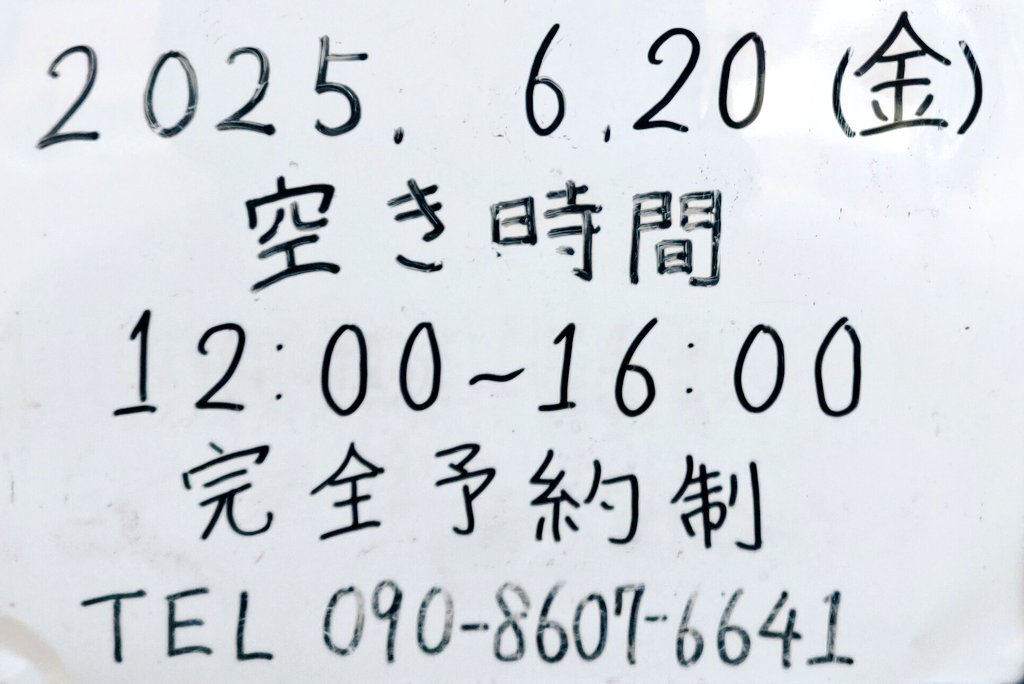 2025. 6.20 (金)
空き時間
12:00~16:00
完全予約制
TEL 090-8607-6641